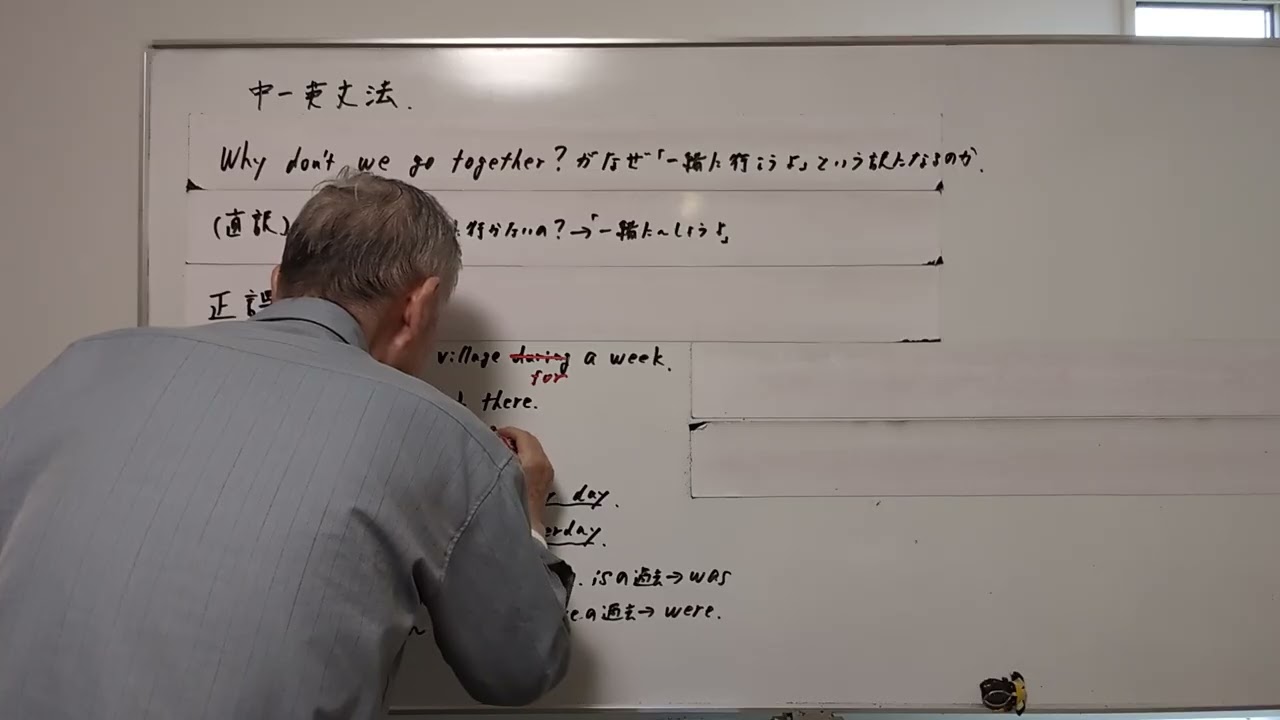 中一英文法.
Why don't we go together? がなぜ「一緒に行こうよ」という訳になるのか.
(直訳) 行かないの?→「一緒に〜しようよ」
正誤
village during a week.
for
there.
day.
erday.
isの過去→was
の過去→were.